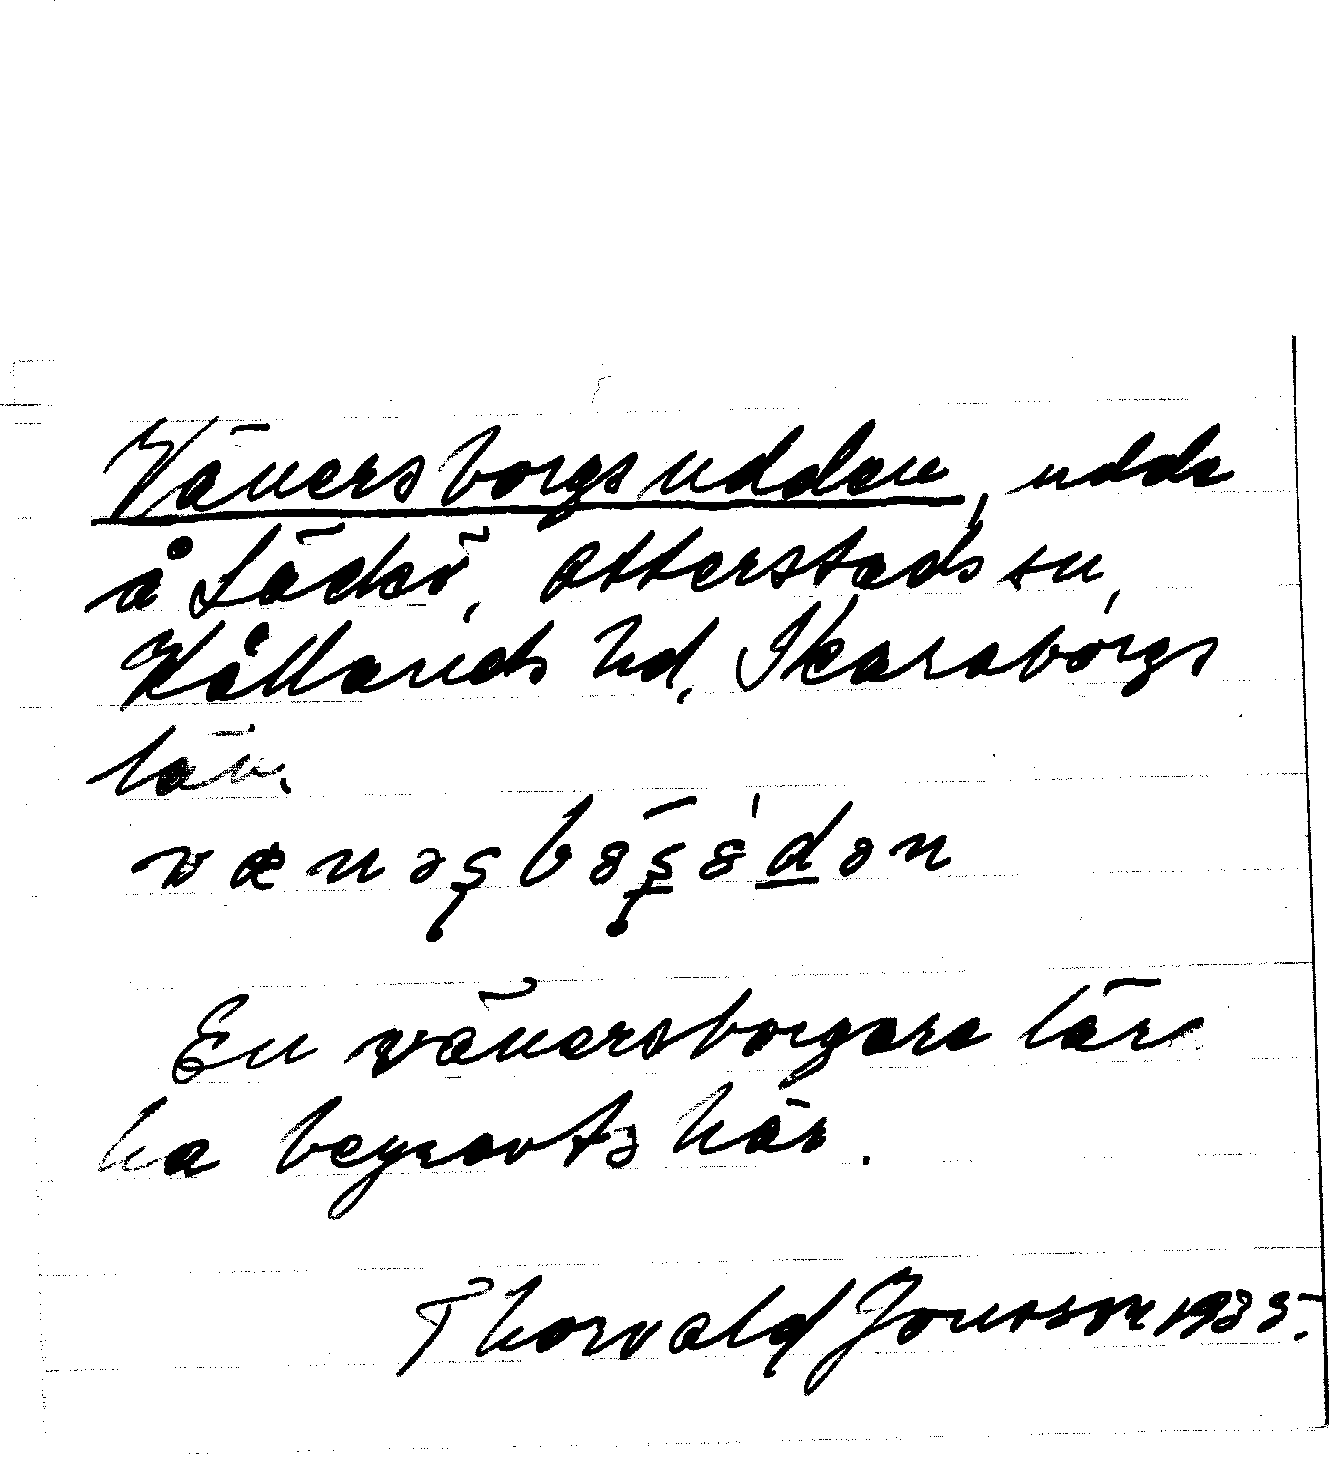 Vänersborgsudden, udde
å Lädkö, Otterstads sn,
Kållands hd, Skaraborgs
län.
En vänersborgare lär
ha begravts här.
Thorvald Jonsson 1935.